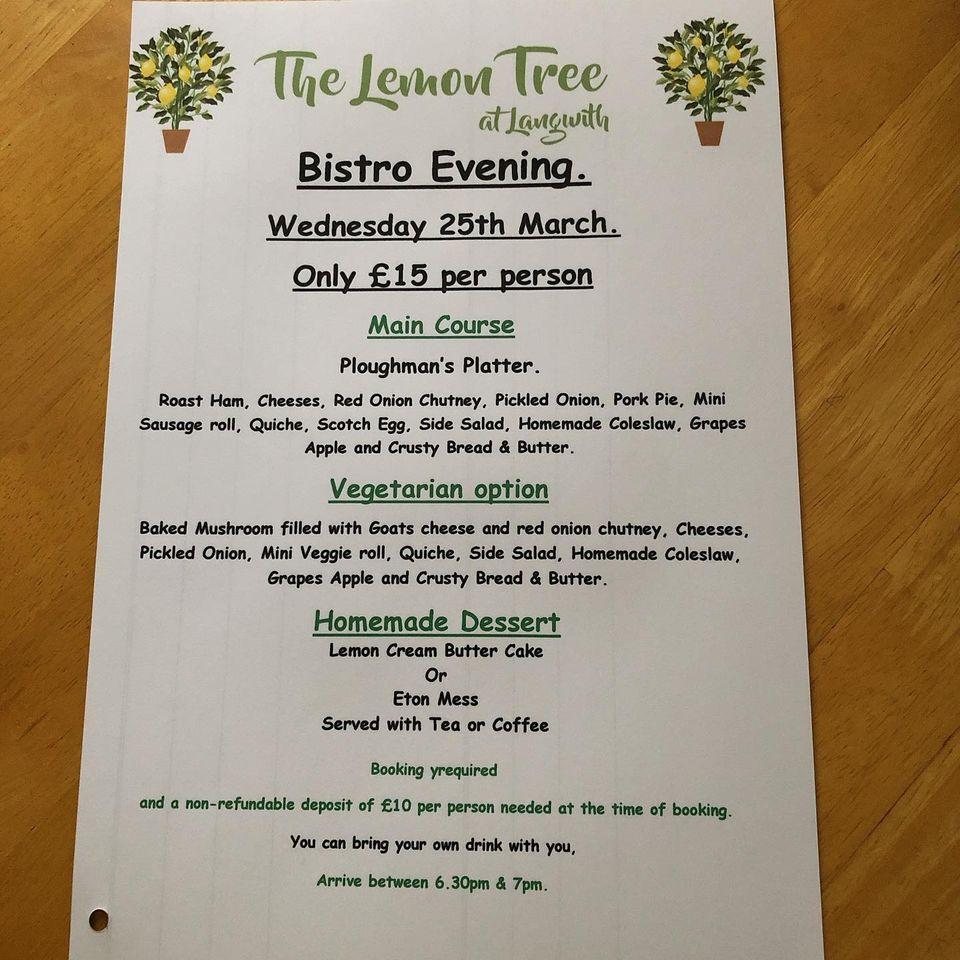 The Lemon Tree
at Langwith
Bistro Evening.
Wednesday 25th March.
Only £15 per person
Main Course
Ploughman's Platter.
Roast Ham, Cheeses, Red Onion Chutney, Pickled Onion, Pork Pie, Mini
Sausage roll, Quiche, Scotch Egg, Side Salad, Homemade Coleslaw, Grapes
Apple and Crusty Bread & Butter.
Vegetarian option
Baked Mushroom filled with Goats cheese and red onion chutney, Cheeses,
Pickled Onion, Mini Veggie roll, Quiche, Side Salad, Homemade Coleslaw,
Grapes Apple and Crusty Bread & Butter.
Homemade Dessert
Lemon Cream Butter Cake
Or
Eton Mess
Served with Tea or Coffee
Booking yrequired
and a non-refundable deposit of £10 per person needed at the time of booking.
You can bring your own drink with you,
Arrive between 6.30pm & 7pm.